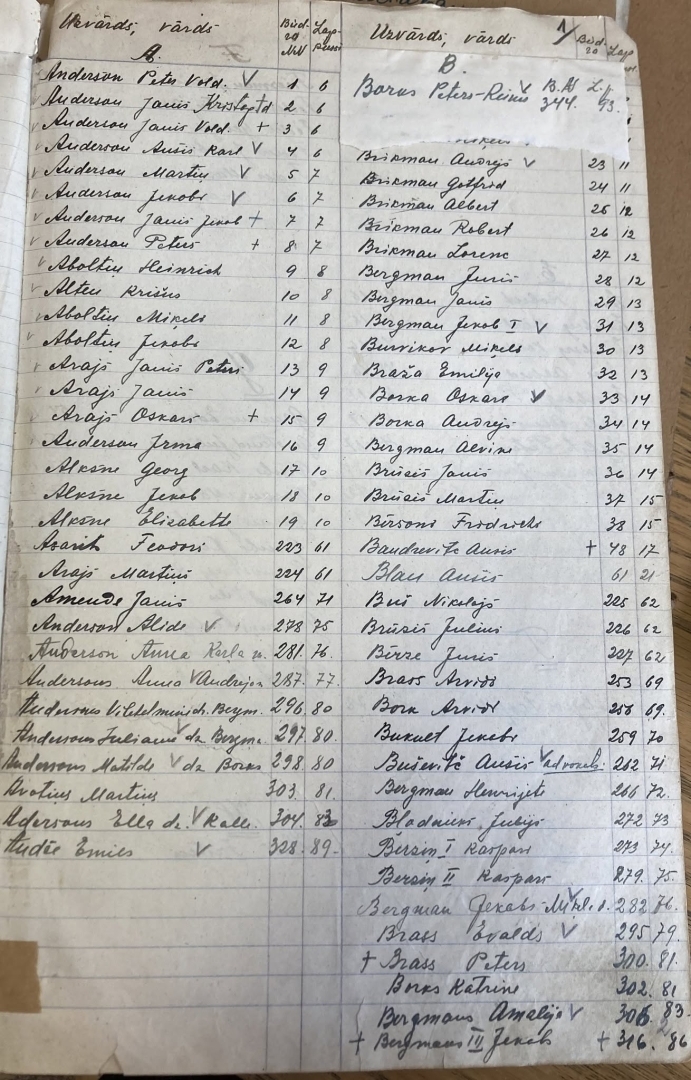 Uzvārds, vārds Būd. 20 NN Lap-puse
A.
Anderson Peter Vold. V 1 6
Anderson Janis Kristapa d 2 6
Anderson Janis Vold. + 3 6
Anderson Ansis Karl V 4 6
Anderson Martiņ V 5 7
Anderson Jekobs V 6 7
Anderson Janis Jekob + 7 7
Anderson Peters + 8 7
Aboltiņ Heinrich 9 8
Alten Krišus 10 8
Aboltiņ Miķels 11 8
Aboltiņ Jekobs 12 8
Arajs Janis Peters 13 9
Arajs Janis 14 9
Arajs Oskars + 15 9
Anderson Irma 16 9
Alksne Georg 17 10
Alksne Jekob 18 10
Alksne Elizabette 19 10
Asarit Feodors 223 61
Arajs Martiņš 224 61
Amende Janis 264 71
Anderson Alide V 278 75
Anderson Anna Karla m. 281. 76.
Andersons Anna V Andreja m. 287. 77.
Andersons Vilhelmine dz. Bergm. 296. 80
Andersons Juliane V dz Bergma. 297. 80.
Andersons Matilde V dz Borks 298. 80
Avotiņš Martiņs 303. 81.
Adersons Ella dz. V Kalle. 304. 83
Andže Emils V 328. 89.
Uzvārds, vārds 1/ Būd. 20 Lap
B.
Borks Peters-Reinis V B.N 344. L.p 93.
Brikman Andrejs V 23 11
Brikman Gotfrid 24 11
Brikman Albert 25 12
Brikman Robert 26 12
Brikman Lorenc 27 12
Bergman Juris 28 12
Bergman Janis 29 13
Bergman Jekob I V 31 13
Burvikov Mikels 30 13
Braža Emilija 32 13
Borka Oskars V 33 14
Borka Andrejs 34 14
Bergman Alvine 35 14
Brūzis Janis 36 14
Brūzis Martiņ 37 15
Bērsons Fridrichs 38 15
Baudzevitz Ansis + 48 17
Blau Ansis 61 21
Buš Nikolajs 225 62
Brūzis Julius 226 62
Bērze Juris 227 62
Brass Arvids 253 69
Bork Arvids 256 69.
Bukult Jekobs 259 70
Buševitš Ansis V advokats. 262 71
Bergman Henrijete 266 72.
Blodnieks Julijs 272 73
Bērziņ I Kaspars 273 74.
Bērziņ II Kaspars 279. 75.
Bergman Jekobs-Miķeļa d. 282 76.
Brass Evalds V 295 79.
+ Brass Peters 300. 81.
Borks Katrine 302. 81
Bergmans Amalija V 305. 83.
+ Bergmans III Jekobs + 316. 86